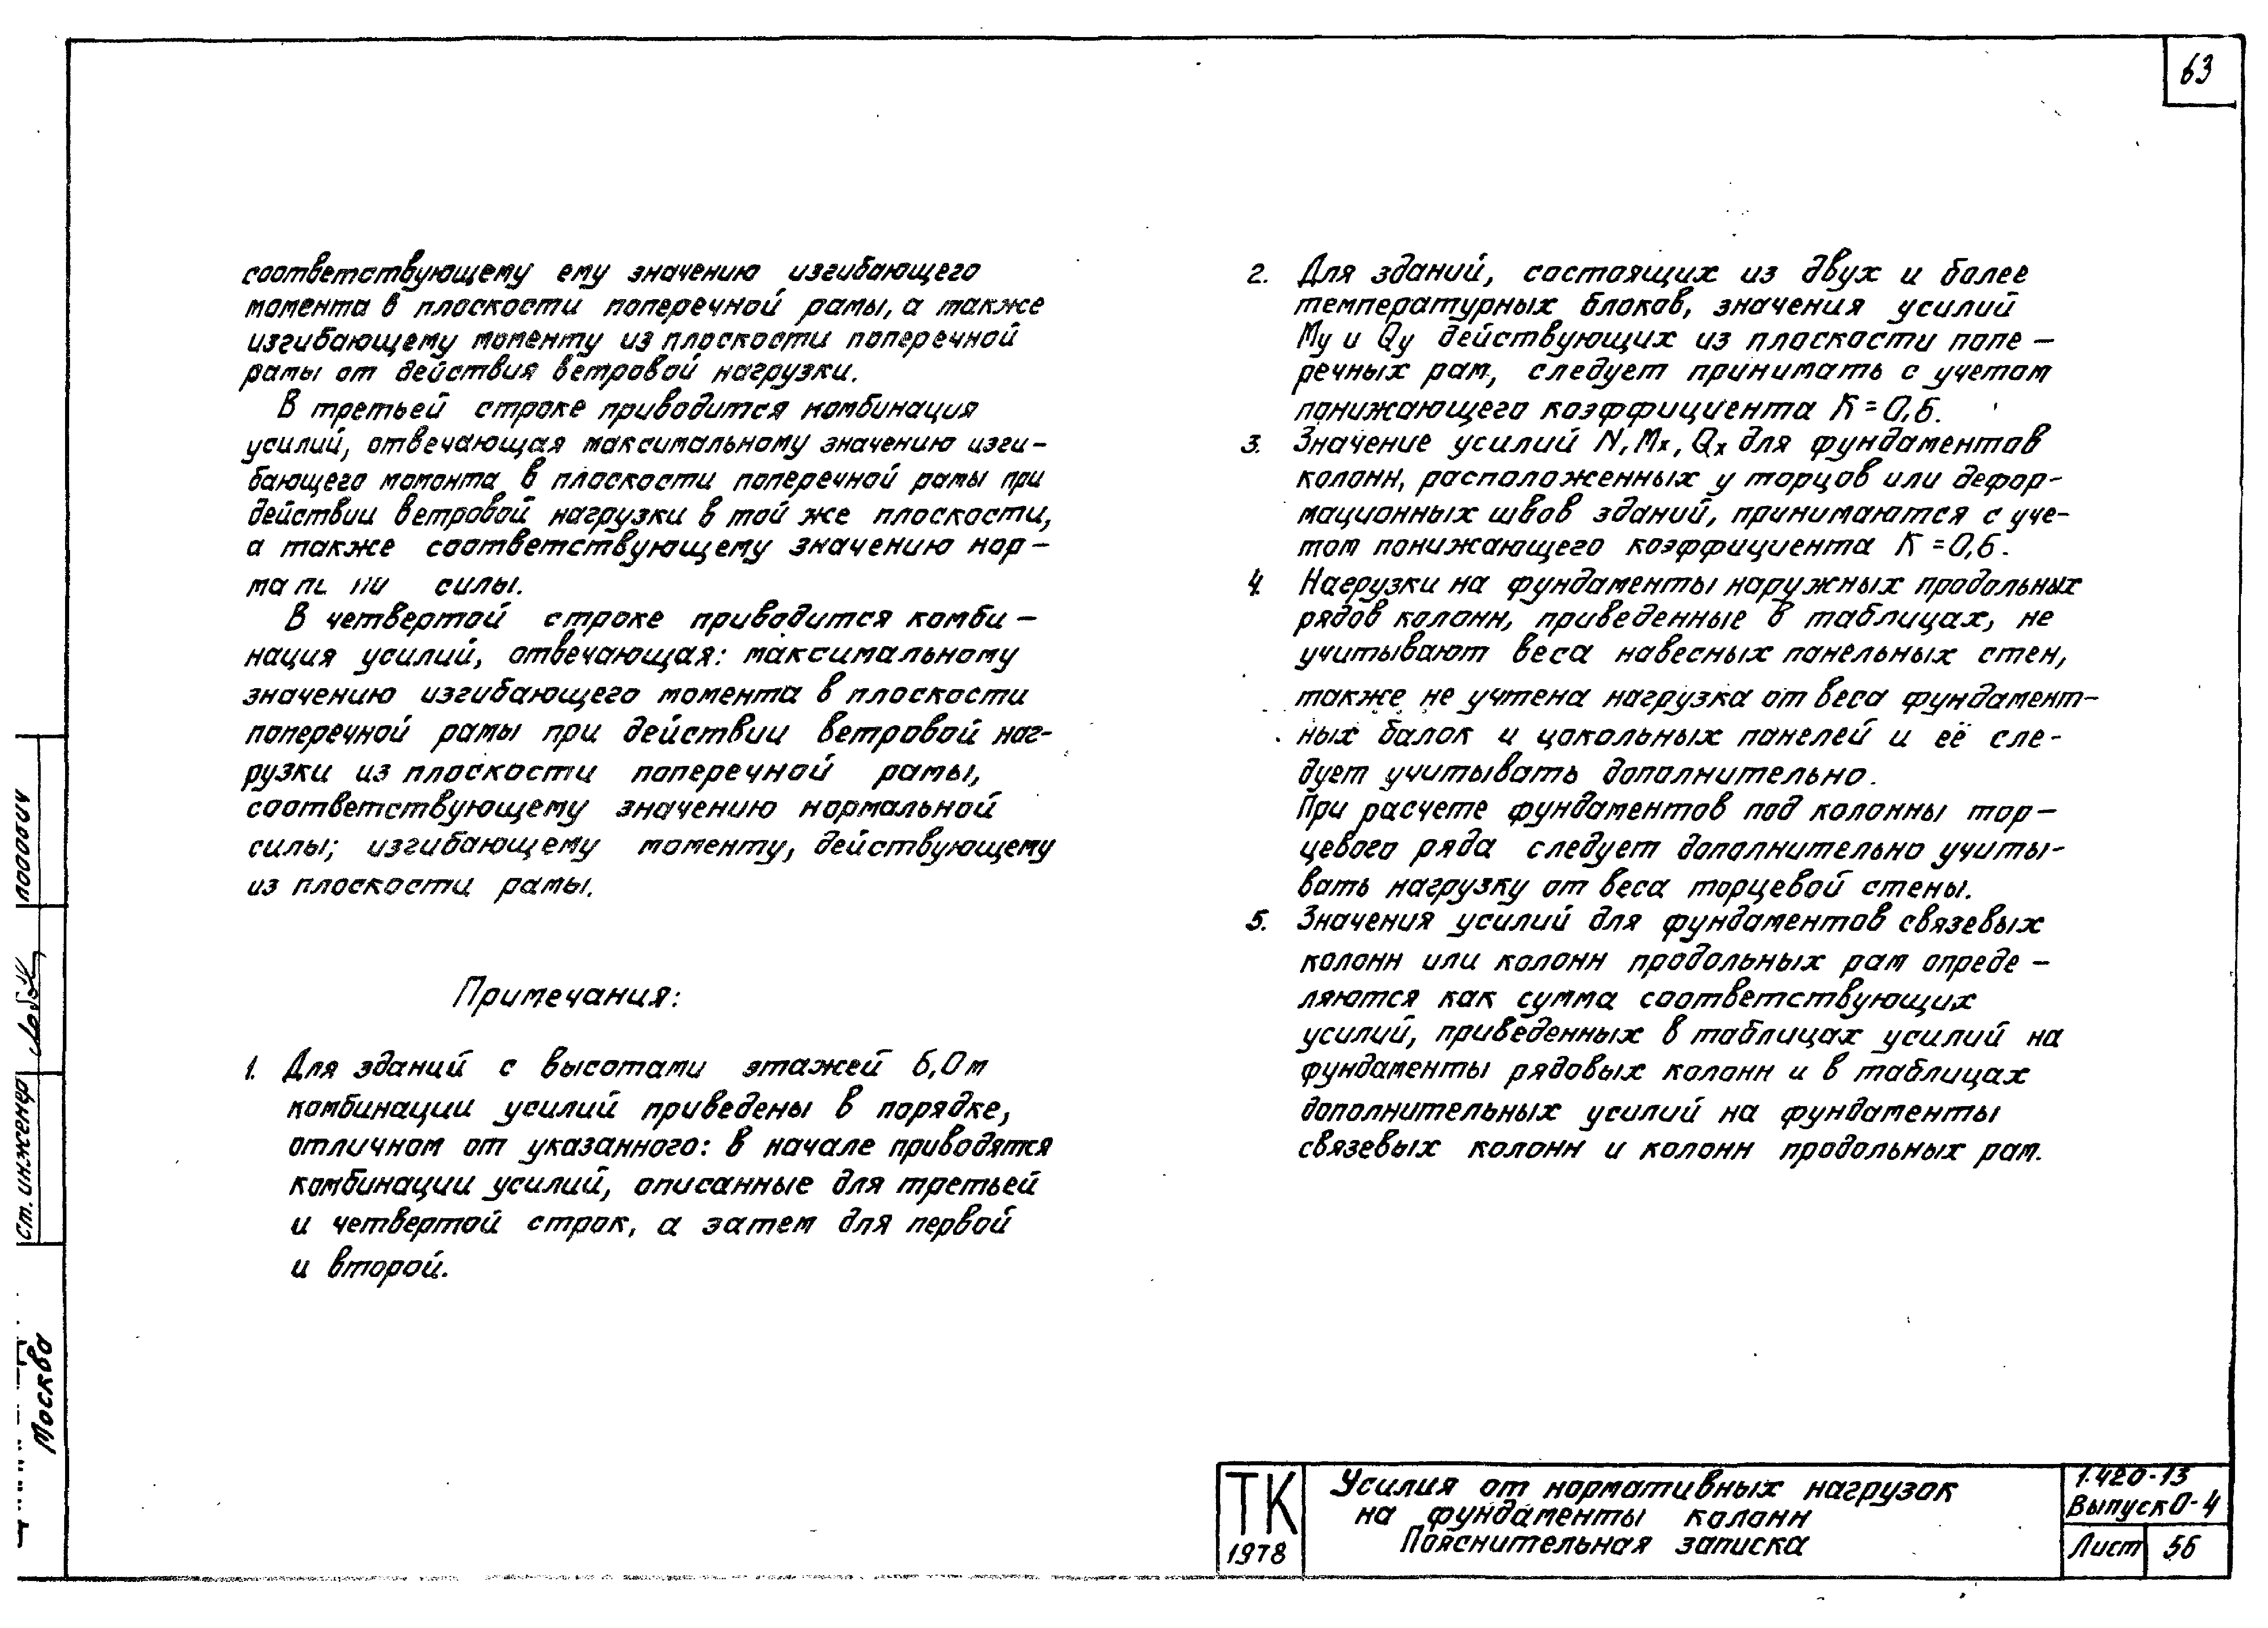 63
соответствующему ему значению изгибающего
момента в плоскости поперечной рамы, а также
изгибающему моменту из плоскости поперечной
рамы от действия ветровой нагрузки.
В третьей строке приводится комбинация
усилий, отвечающая максимальному значению изги-
бающего момонта в плоскости поперечной рамы при
действии ветровой нагрузки в той же плоскости,
а также соответствующему значению нор-
силы.
В четвертой строке приводится комби-
нация усилий, отвечающая: максимальному
значению изгибающего момента в плоскости
поперечной рамы при действии ветровой наг-
рузки из плоскости поперечной рамы,
соответствующему значению нормальной
силы; изгибающему моменту, действующему
из плоскости рамы.
Примечания:
1. Для зданий с высотами этажей 6,0м
комбинации усилий приведены в порядке,
отличном от указанного: в начале приводятся
комбинации усилий, описанные для третьей
и четвертой строк, а затем для первой
и второй.
2. Для зданий, состоящих из двух и более
температурных блоков, значения усилий
Му и Qу действующих из плоскости попе-
речных рам, следует принимать с учетом
понижающего коэффициента К=0,6.
3. Значение усилий N, Мх, Qх для фундаментов
колонн, расположенных у торцов или дефор-
мационных швов зданий, принимаются с уче-
том понижающего коэффициента К=0,6.
4. Нагрузки на фундаменты наружных продольных
рядов колонн, приведенные в таблицах, не
учитывают веса навесных панельных стен,
также не учтена нагрузка от веса фундамент-
ных балок и цокольных панелей и её сле-
дует учитывать дополнительно.
При расчете фундаментов под колонны тор-
цевого ряда следует дополнительно учиты-
вать нагрузку от веса торцевой стены.
5. Значения усилий для фундаментов связевых
колонн или колонн продольных рам опреде-
ляются как сумма соответствующих
усилий, приведенных в таблицах усилий на
фундаменты рядовых колонн и в таблицах
дополнительных усилий на фундаменты
связевых колонн и колонн продольных рам.
Ст. инженер
Москва
ТК
1978
Усилия от нормативных нагрузок
на фундаменты колонн
Пояснительная записка
1.420-13
Выпуск 0-4
Лист 56